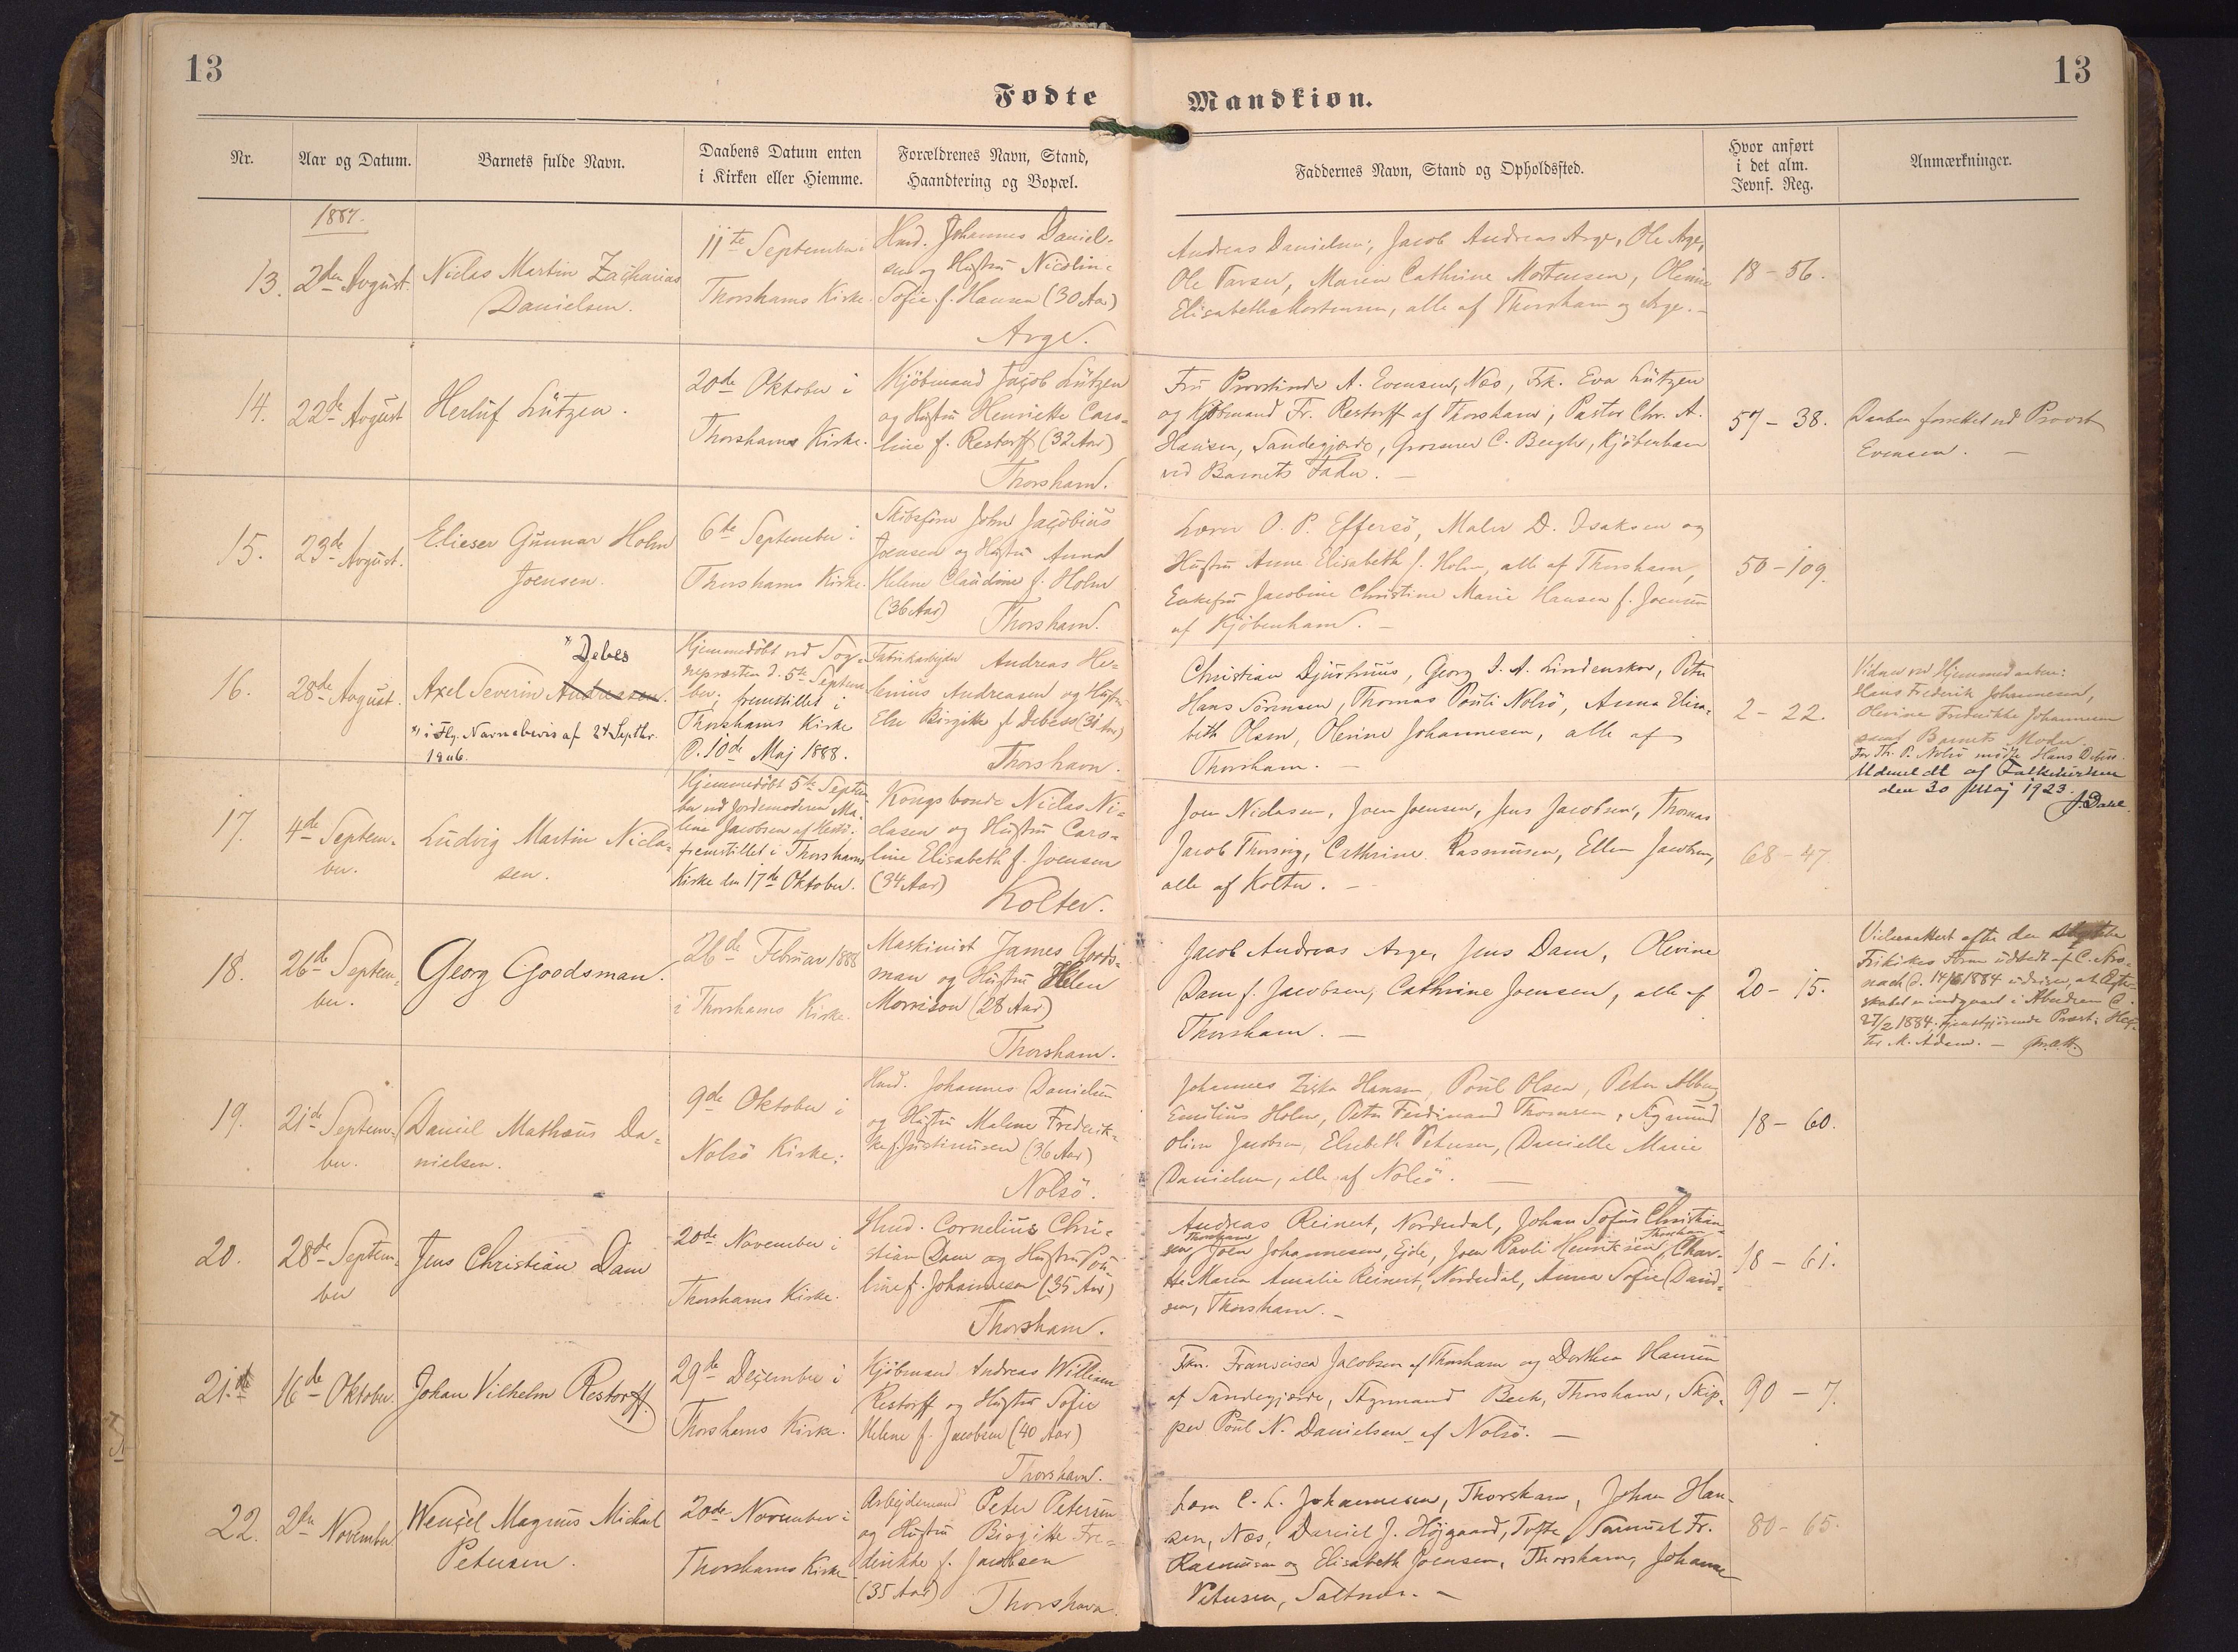 13
13
Fødte
Mandkiøn.
Nr.
Aar og Datum.
Barnets fulde Navn.
Daabens Datum enten
i Kirken eller Hiemme.
Forældrenes Navn, Stand,
Haandtering og Bopæl.
Faddernes Navn, Stand og Opholdssted.
Hvor anført
i det alm.
Jevnf. Reg.
Anmærkninger.
1887.
13.
2den August.
Niclas Martin Zacharias
Danielsen.
11te September i
Thorshavns Kirke.
Hmd. Johannes Daniel-
sen og Hustru Nicolin-
Sofie f. Hansen (30 Aar)
Arge.
Andreas Danielsen, Jacob Andreas Arge, Ole Arge,
Ole Larsen, Maren Cathrine Mortensen, Olevine
Elisabeth Mortensen, alle af Thorshavn og Arge.
18 - 56.
14.
22de August
Herluf Lützen.
20de Oktober i
Thorshavns Kirke.
Kjöbmand Jacob Lützen
og Hustru Henriette Caro-
line f. Restorff (32 Aar)
Thorshavn.
Fru Provstinde A. Evensen, Næs, Frk. Eva Lützen
og Kjöbmand Fr. Restorff af Thorshavn, Pastor Chr. A.
Hansen, Sandegjærde, Grosserer C. Bergh, Kjöbenhavn
ved Barnets Fader.
57 - 38.
Daaben forrettet ved Provst
Evensen.
15.
23de August.
Elieser Gunnar Holm
Joensen.
6te September i
Thorshavns Kirke.
Skibsförer John Jacobius
Joensen og Hustru Anna
Helene Claudine f. Holm
(36 Aar) Thorshavn.
Lærer O. P. Effersö, Maler D. Isaksen og
Hustru Anne Elisabeth f. Holm, alle af Thorshavn,
Enkefru Jacobine Christine Marie Hansen f. Joensen
af Kjöbenhavn.
50 - 109.
16.
28de August.
*) Debes
Axel Severin Andreasen.
*) i Flg. Navnebevis af 24 Septbr.
1906.
Hjemmedöbt ved Sog-
nepræsten d. 5te Septem-
ber; fremstillet i
Thorshavns Kirke
d. 10de Maj 1888.
Fabrikarbejder Andreas He-
lenius Andreasen og Hustru
Else Birgitte f. Debess (31 Aar)
Thorshavn.
Christian Djurhuus, Georg I. A. Lindenskov, Peter
Hans Sörensen, Thomas Pouli Nolsö, Anna Elisa-
beth Olsen, Olevine Johannesen, alle af
Thorshavn.
2 - 22.
Vidner ved Hjemmedaaben:
Hans Frederik Johannesen,
Olevine Frederikke Johannesen
samt Barnets Moder.
For Th. P. Nolsö mödte Hans Debess.
Udmeldt af Folkekirken
den 30 Maj 1923.
J. Dahl.
17.
4de Septem-
ber.
Ludvig Martin Nicla-
sen.
Hjemmedöbt 5te Septem-
ber ved Jordemoderen Ma-
lene Jacobsen af Hestö.
fremstillet i Thorshavns
Kirke den 17de Oktober.
Kongsbonde Niclas Ni-
clasen og Hustru Caro-
line Elisabeth f. Joensen
(34 Aar)
Kolter.
Joen Niclasen, Joen Joensen, Jens Jacobsen, Thomas
Jacob Thuring, Cathrine Rasmusen, Ellen Jacobsen,
alle af Kolter.
68 - 47.
18.
26de Septem-
ber.
Georg Goodsman.
26de Februar 1888
i Thorshavns Kirke.
Maskinist James Goods-
man og Hustru Helen
Morrison (28 Aar)
Thorshavn.
Jacob Andreas Arge, Jens Dam, Olevine
Dam f. Jacobsen, Cathrine Joensen, alle af
Thorshavn.
20 - 15.
Vielsesattest efter den skotske
Frikirkes Form udstedt af
1884 udviser, at Ægte-
skabet er indgaaet i Aberdeen d.
27/2 1884; tjenstgjørende Præst:
M. Adam.
19.
21de Septem-
ber.
Daniel Mathæus Da-
nielsen.
9de Oktober i
Nolsö Kirke.
Hmd. Johannes Danielsen
og Hustru Malene Frederik-
ke f. Justinussen (36 Aar)
Nolsö.
Johannes Ziska Hansen, Poul Olsen, Peter
Emilius Holm, Peter Ferdinand Thomsen, Sigmund
Olivur Jacobsen, Elsebeth Petersen, Danielle Marie
Danielsen, alle af Nolsö.
18 - 60.
20.
28de Septem-
ber
Jens Christian Dam
20de November i
Thorshavns Kirke.
Hmd. Cornelius Chri-
stian Dam og Hustru Pou-
line f. Johannesen (35 Aar)
Thorshavn.
Andreas Reinert, Norderdal, Johan Sofus Christian-
sen Thorshavn Joen Johannesen, Ejde, Joen Pavli Henriksen, Thorshavn, Char-
Maren Amalie Reinert, Norderdal, Anna Sofie David-
sen, Thorshavn.
18 - 61.
21.
16de Oktober.
Johan Vilhelm Restorff.
29de December i
Thorshavns Kirke.
Kjöbmand Andreas William
Restorff og Hustru Sofie
Helene f. Jacobsen (40 Aar)
Thorshavn.
Frkn. Franscisca Jacobsen af Thorshavn og Dorthea Hansen
af Sandegjærde, Styrmand Beck, Thorshavn, Skip-
per Poul N. Danielsen af Nolsö.
90 - 7.
22.
2den November
Wenzel Magnus Michael
Petersen.
20de November i
Thorshavns Kirke
Arbejdsmand Peter Petersen
og Hustru Birgitte Fre-
derikke f. Jacobsen
(35 Aar)
Thorshavn
C. L. Johannesen, Thorshavn, Johan Han-
sen, Næs, Daniel J. Höjgaard, Tofte, Samuel Fr.
Rasmusen og Elisabeth Joensen, Thorshavn, Johanne
Petersen, Saltnæs.
80 - 65.